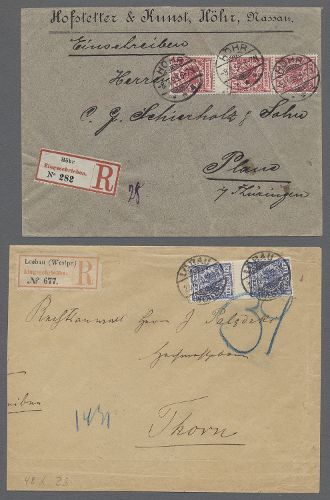 Hofstetter & Kunst, Höhr, Nassau.
Einschreiben
HÖHR
HÖHR
HÖHR
Herren
C. G. Schierholz & Sohn
Plaue
i/ Thüringen
Höhr
Eingeschrieben.
№ 282
R
28
Loebau (Westpr)
Eingeschrieben.
№ 677.
R
LOEBAU
LOEBAU
Rechtsanwalt Herrn
Hochwohlgeboren
Thorn